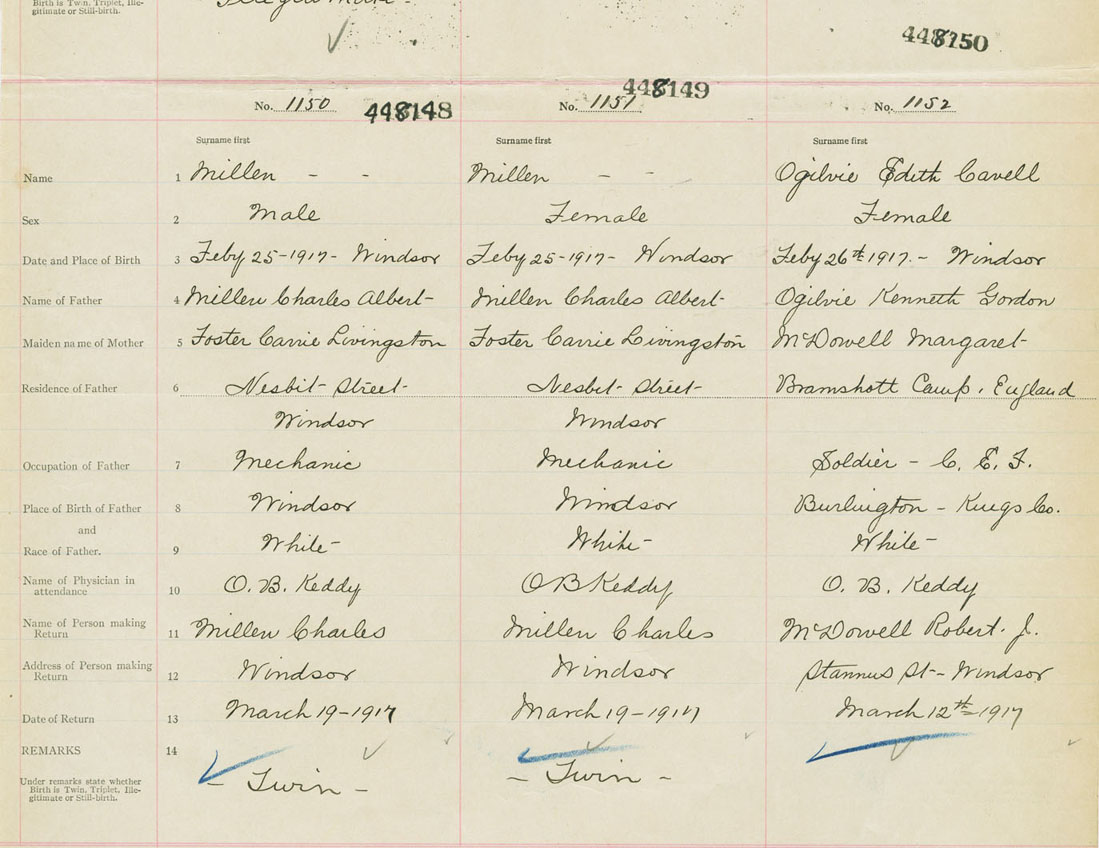 Birth is Twin, Triplet, Ille-
gitimate or Still-birth.
448150
No. 1150 448148 No. 1151 448149 No. 1152
Surname first Surname first Surname first
Name 1 Millen - - Millen - - Ogilvie Edith Cavell
Sex 2 Male Female Female
Date and Place of Birth 3 Feby 25-1917- Windsor Feby 25-1917- Windsor Feby 26th 1917.- Windsor
Name of Father 4 Millen Charles Albert- Millen Charles Albert- Ogilvie Kenneth Gordon
Maiden name of Mother 5 Foster Carrie Livingston Foster Carrie Livingston McDowell Margaret-
Residence of Father 6 Nesbit Street Nesbit Street Bramshott Camp. England
Windsor Windsor
Occupation of Father 7 Mechanic Mechanic Soldier - C. E. F.
Place of Birth of Father 8 Windsor Windsor Burlington - Kings Co.
and
Race of Father. 9 White- White- White-
Name of Physician in
attendance 10 O. B. Keddy O B Keddy O. B. Keddy
Name of Person making
Return 11 Millen Charles Millen Charles McDowell Robert. J.
Address of Person making
Return 12 Windsor Windsor Stannus St- Windsor
Date of Return 13 March 19-1917 March 19-1917 March 12th-1917
REMARKS 14
Under remarks state whether
Birth is Twin, Triplet, Ille-
gitimate or Still-birth.
- Twin - - Twin -